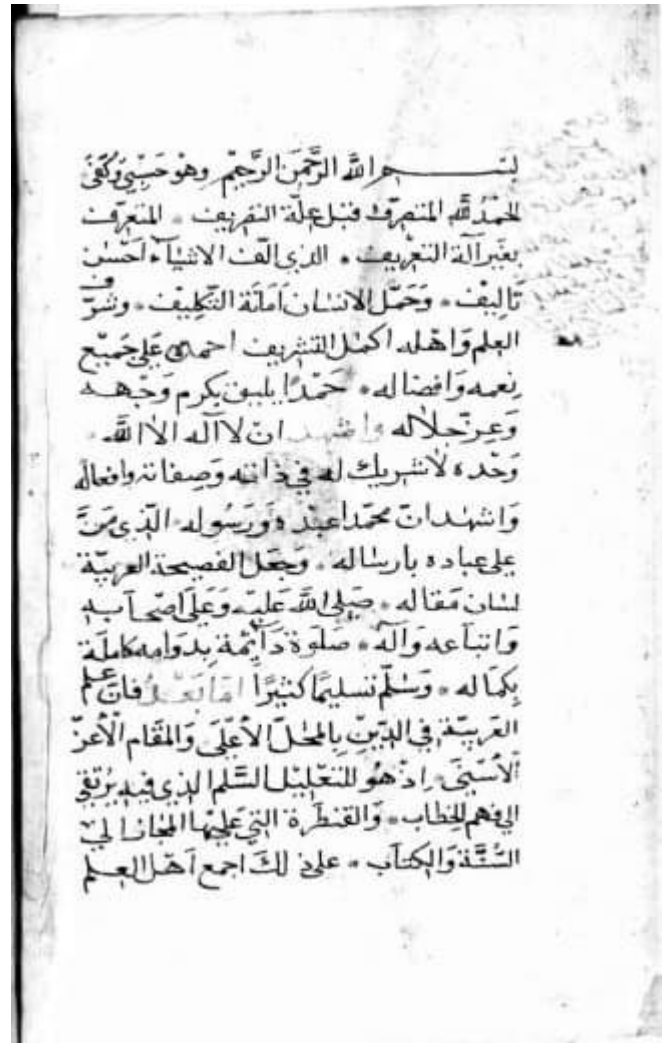 بسم الله الرَّحْمَن الرَّحِيْمِ وهو حَسْبِيْ وَكَفَى
الحَمْدُ لله المتصرّف قبل علّة التصريف ۞ المتعرّف
بغير آلة التعريف ۞ الذي الّف الاشياء احْسَن
تَاليف ۞ وَحَمّل الانسان اَمَانَة التّكليف ۞ وشرّف
العلم وَاهله اكمل التشريف احمده عَلى جَميْع
نِعمه وَافضاله ۞ حَمْدًا يليق بكرم وَجْهه
وَعِزّ جلاله واشهد ان لا اله الا الله ۞
وَحْده لا شريك له في ذاته وَصِفاته وافعاله
وَاشهد انّ محمّدا عبْده وَرَسُوله الّذي مَنَّ
على عباده بارساله ۞ وَجَعَل الفصيحة العربيّة
لسان مَقاله ۞ صَلى الله عَليْه وَعَلى اَصْحَابه
وَاتباعه وَآله ۞ صَلَوة دَائِمة بِدَوامه كاملَة
بِكمَاله ۞ وَسَلّم تسليمًا كثيرًا امّا بَعْدُ فانّ علم
العَربيّة في الدّيْن بِالمحَلّ الأعْلَى وَالمقَام الْأعزّ
الْأسْنَى ۞ اِذ هُو للتعْليْل السُّلم الذي فيه يُرتقى
الى فهم الخِطاب ۞ وَالقنطَرة التي عَليْهَا المجاز الى
السُّنَّة وَالكتَاب ۞ على ذلكَ اجمع اَهْل العِلم